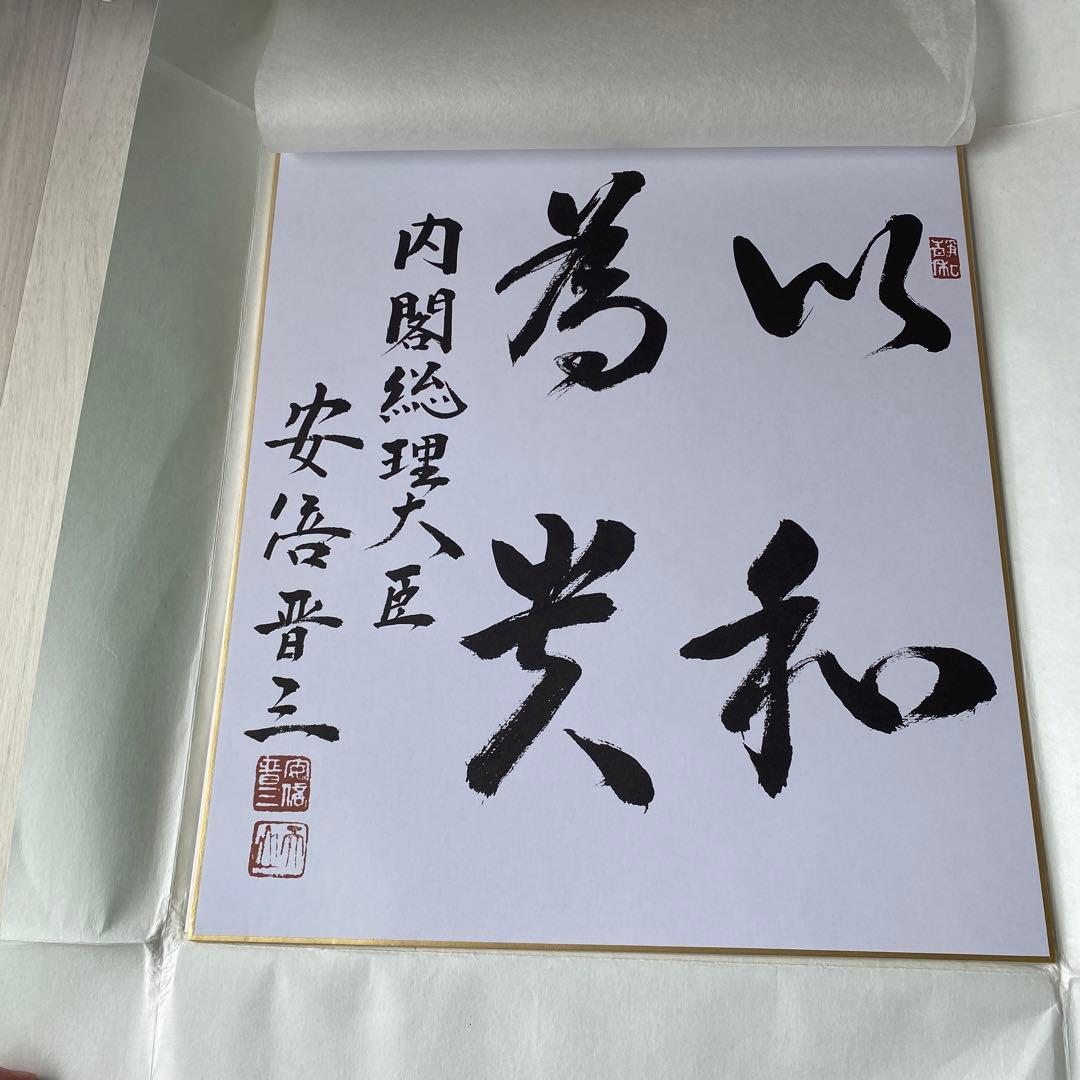 以和
為貴
内閣総理大臣
安倍晋三
安倍晋三